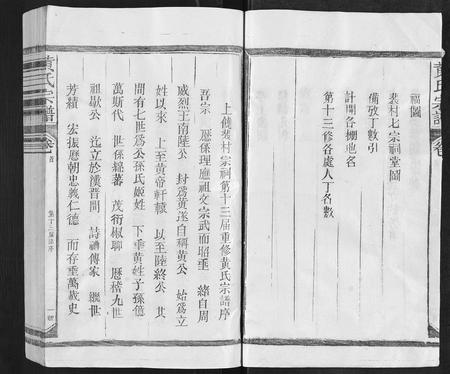 福圖
裴村七宗祠堂圖
備攷丁數引
計開各棚地名
第十三修各處人丁名數
黃氏宗譜
上饒裴村宗祠第十三屆重修黃氏宗譜序
吾宗 應係理應祖文宗武而昭垂 緒自周
威烈王南陸公 封為黃遂自稱黃公 始為立
姓以來 上至黃帝軒轅 以至陸終公 其
間有七世為公孫氏姬姓 下垂黃姓子孫億
萬斯代 世係綿蕃 茂衍椒聊 歷稽九世
祖歇公 迄立於漢晉間 詩禮傳家 繼世
芳績 宏振歷朝忠義仁德 而存垂萬載史
黃氏宗譜
卷首
第十三屆譜序